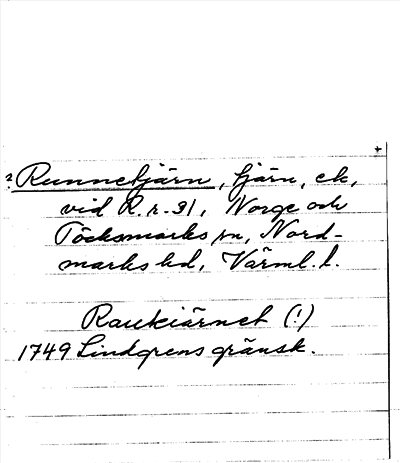 +
2. Runnetjärn, tjärn, ek,
vid R. r. 31, Norge och
Töcksmarks sn, Nord-
marks hd, Värml. l.
Raukiärnet (!)
1749 Lindgrens gränsk.